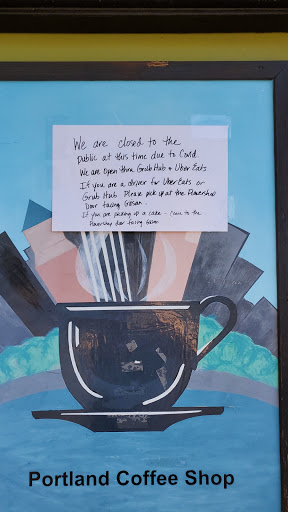 We are closed to the
public at this time due to Covid.
We are Open thru Grub Hub + Uber Eats
If you are a driver for Uber Eats or
Grub Hub Please pick up at the
Door facing Glisan.
If you are picking up a cake - Come to the
door facing Glisan
Portland Coffee Shop